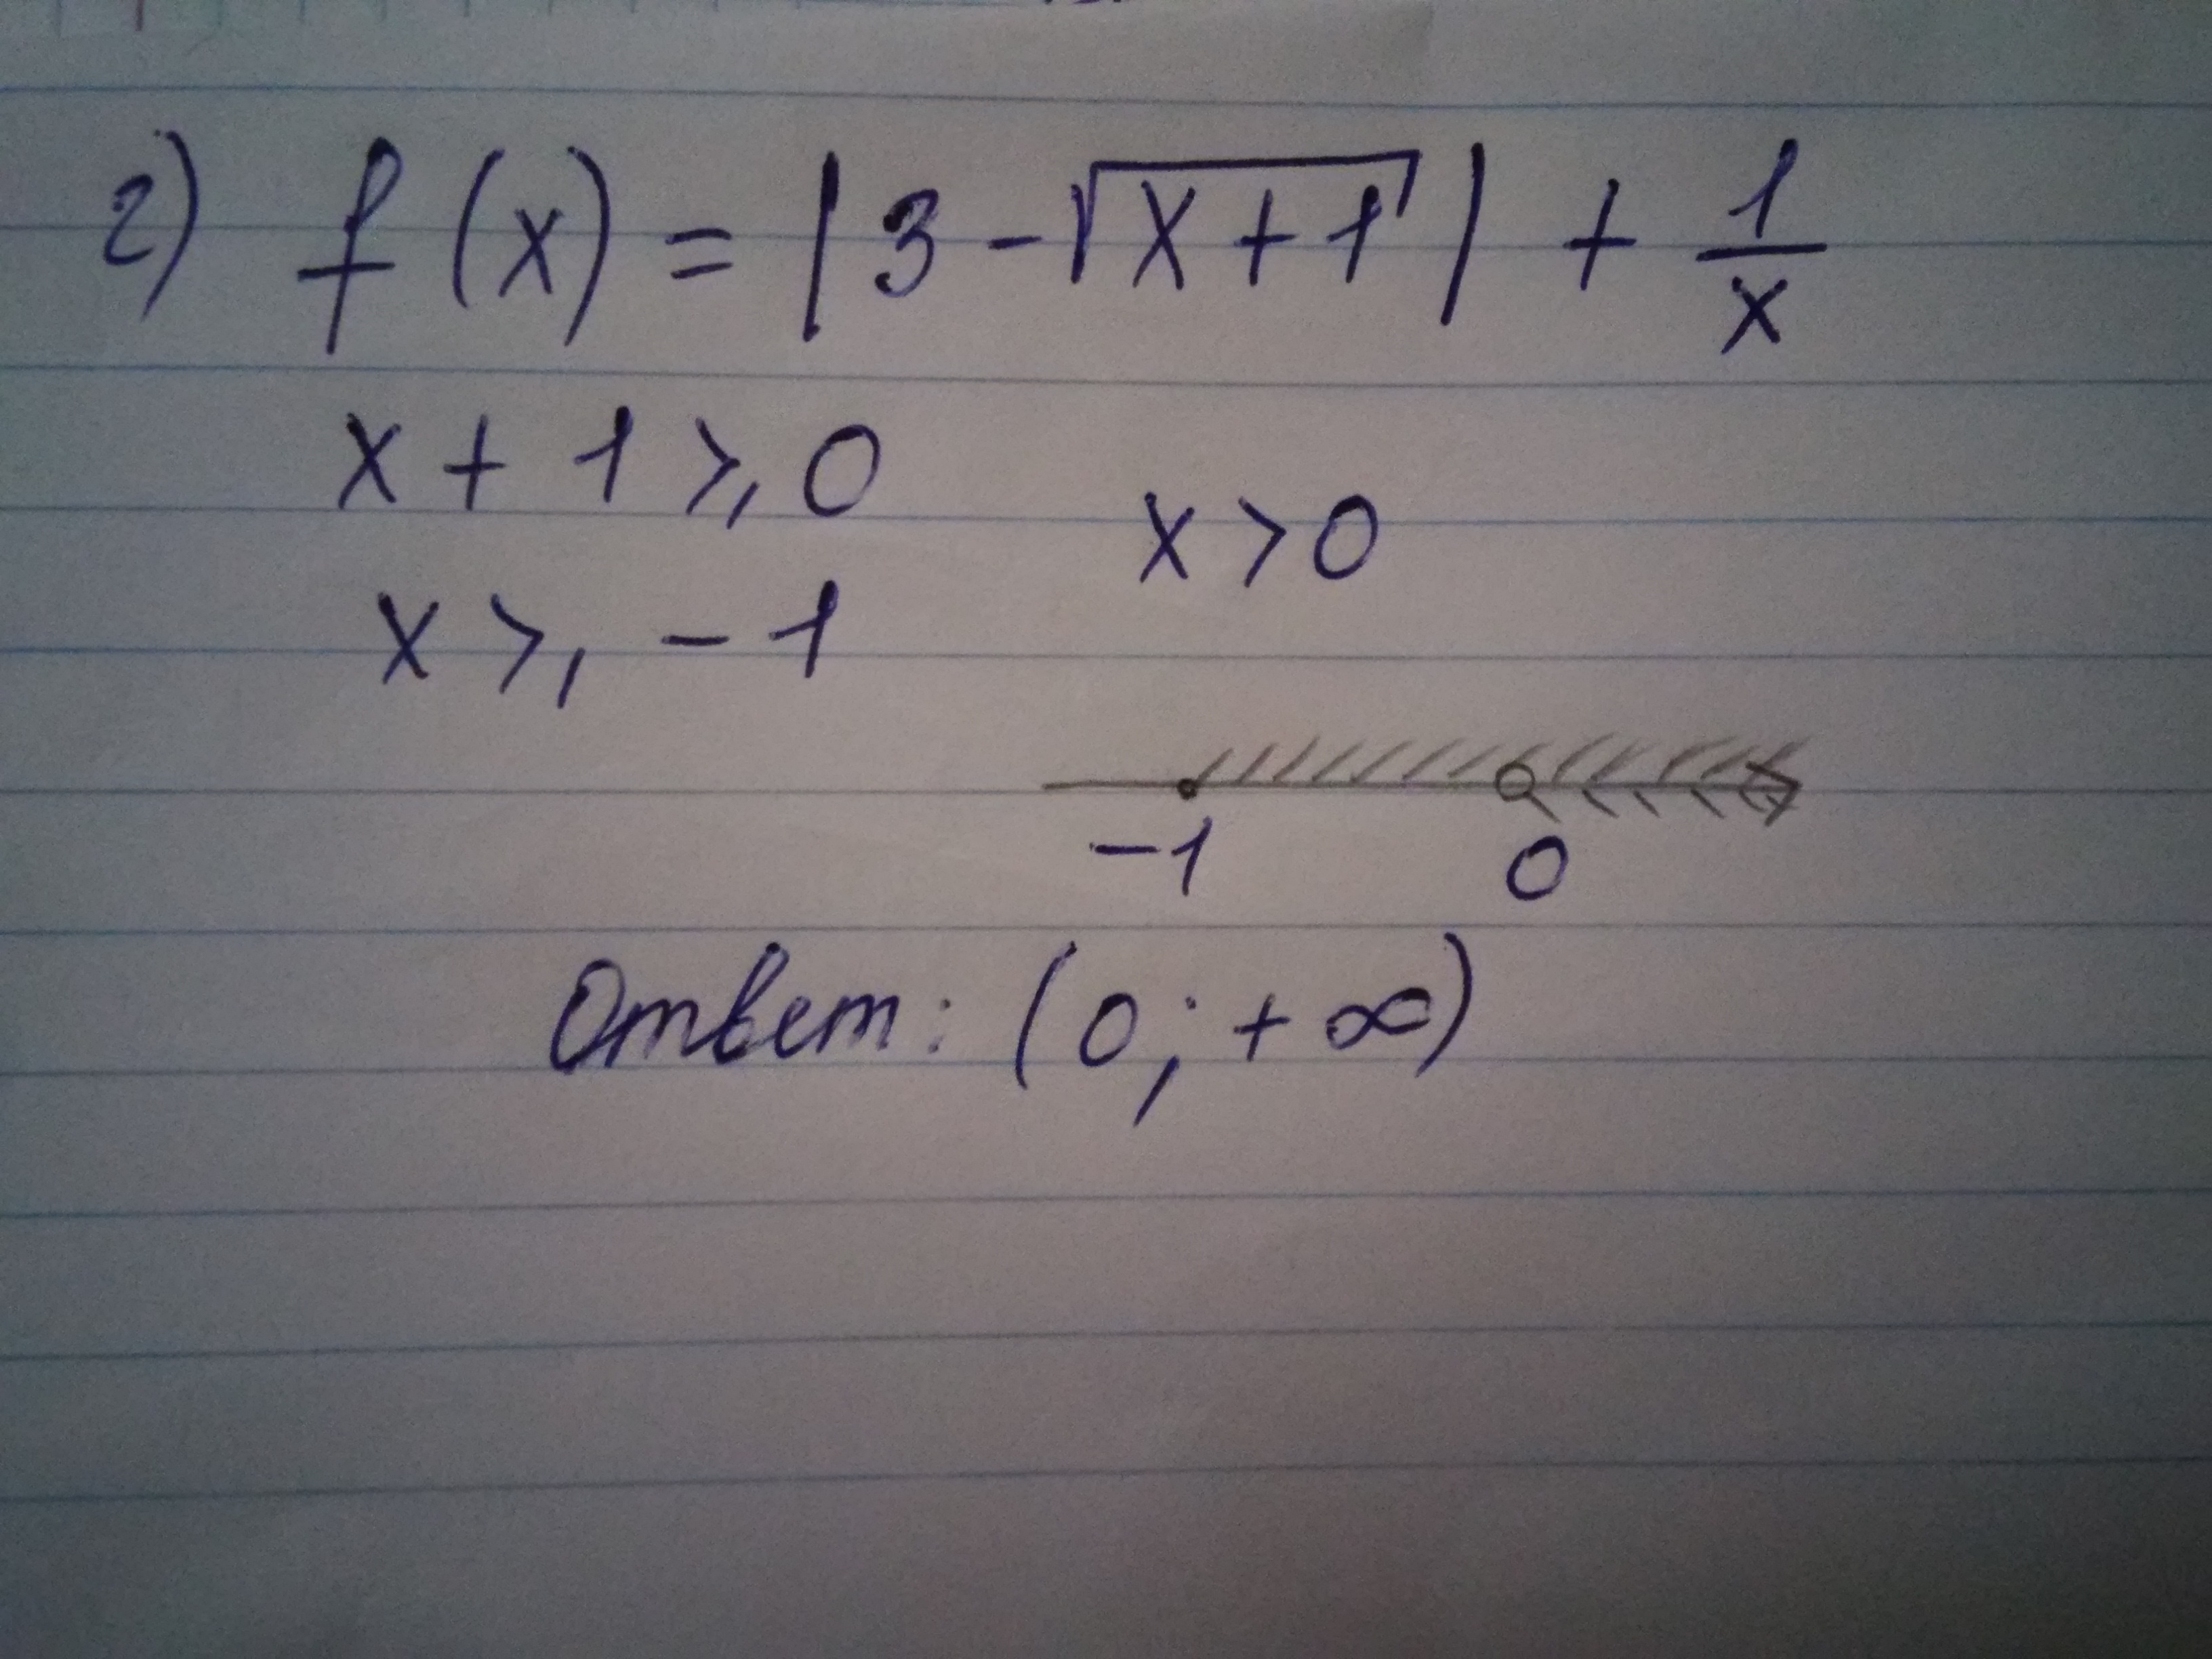 2) f(x) = |3 - √(x+1)| + 1/x
x + 1 ≥ 0
x > 0
x ≥ -1
-1 0
Ответ: (0; +∞)